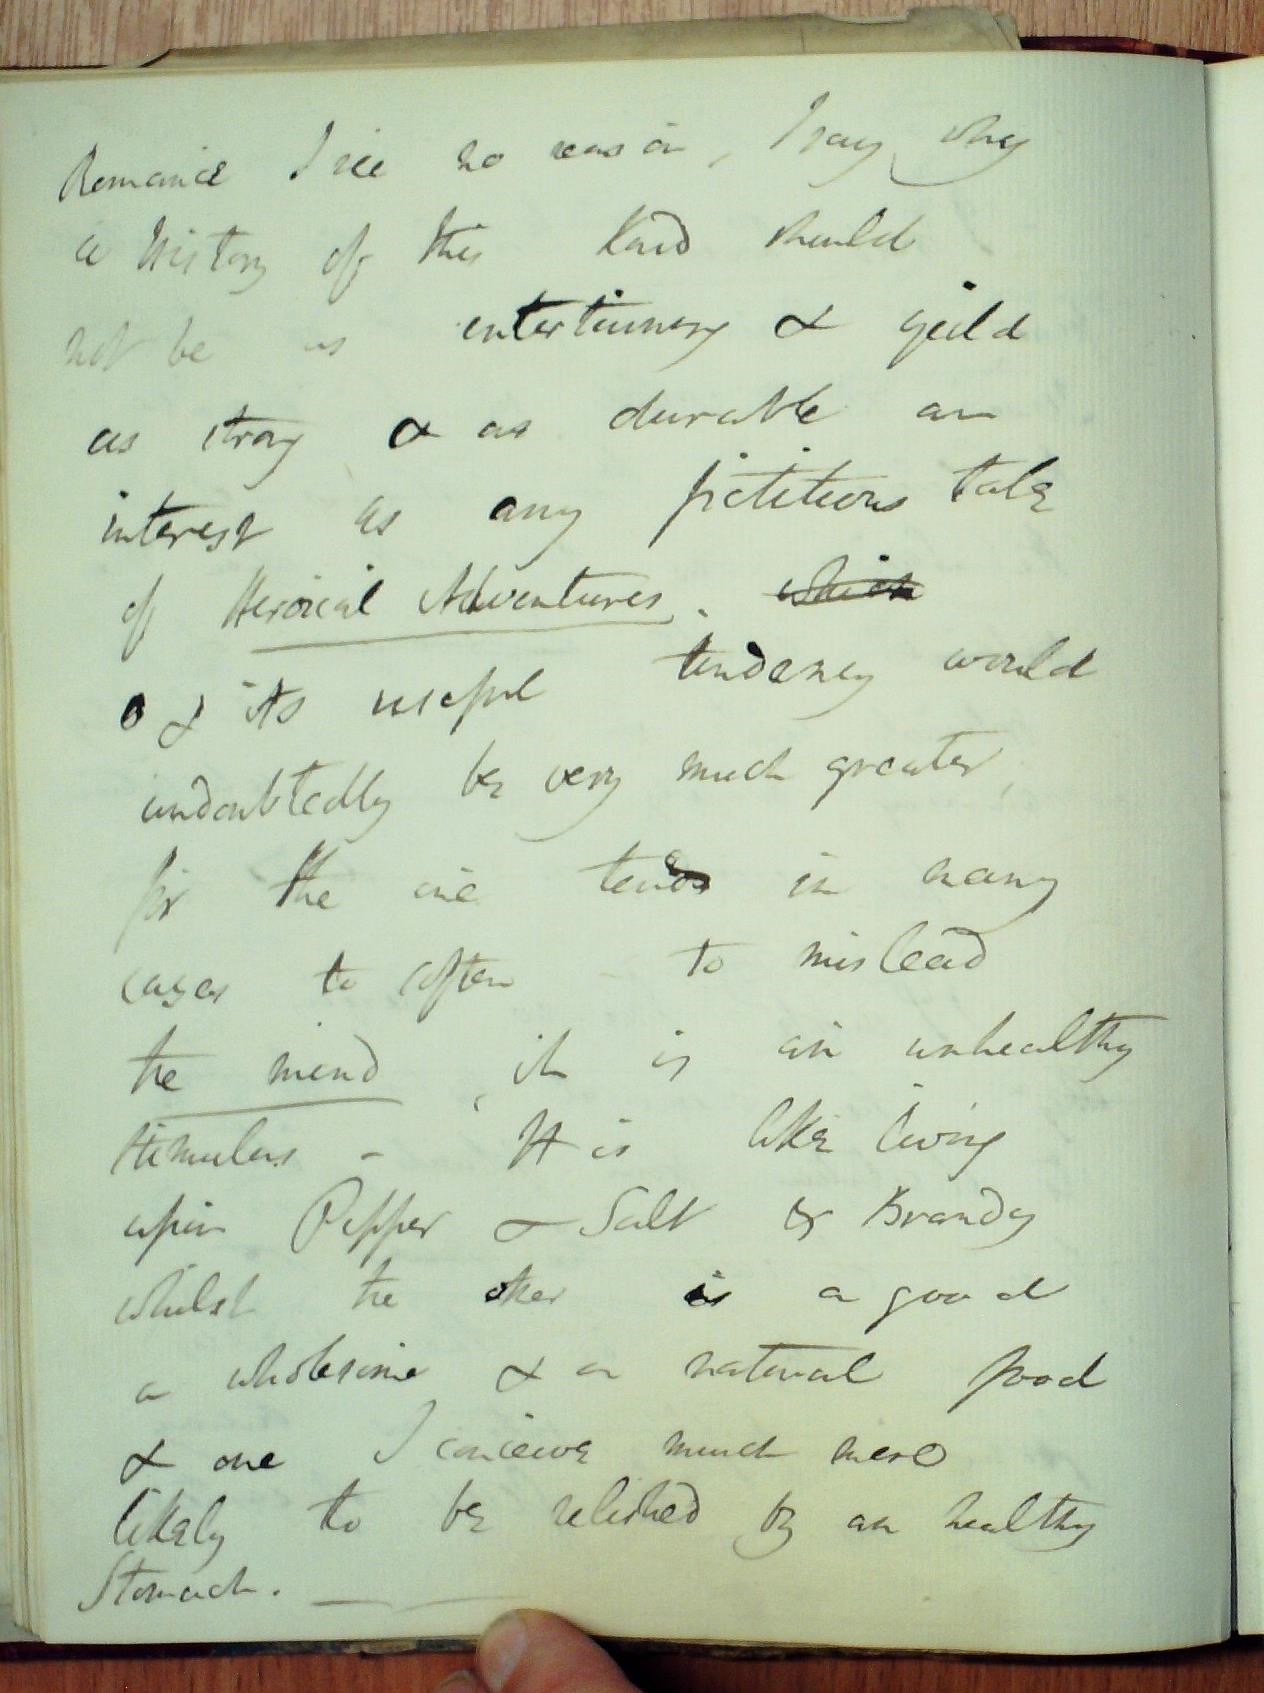 Romance I see no reason, I say, why
a History of this kind should
not be as entertaining & yield
as strong & as durable an
interest as any fictitious tale
of Heroical Adventures. which
& its useful tendency would
undoubtedly be very much greater,
for the one tends in many
cases to often - to mislead
the mind, it is an unhealthy
stimulus - It is like living
upon Pepper & Salt & Brandy
whilst the other is a good
a wholesome & a natural food
& one I conceive much more
likely to be relished by an healthy
Stomach.